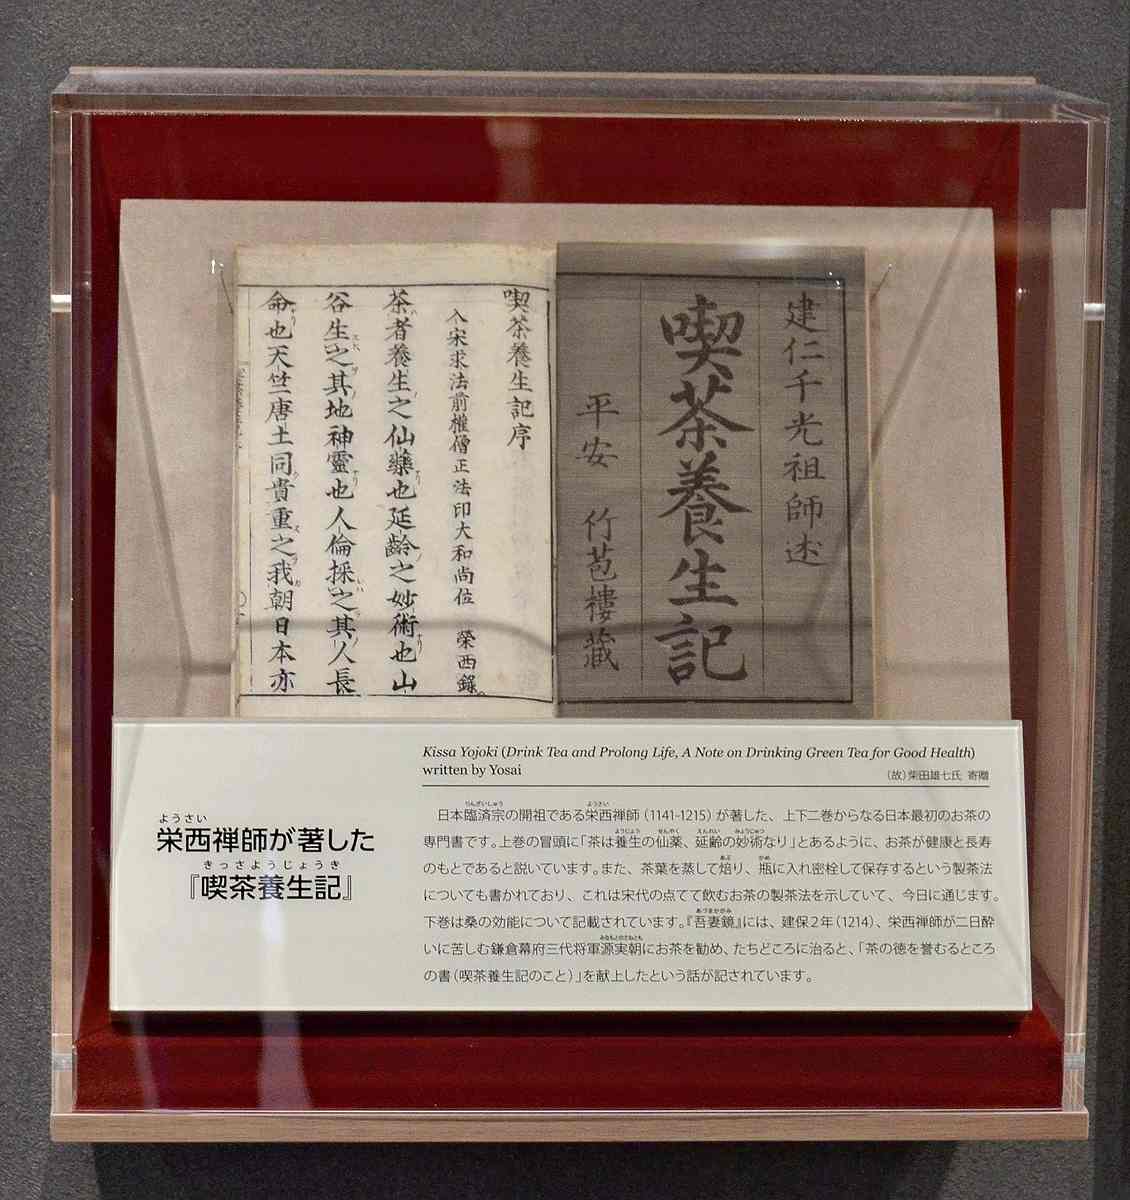 建仁千光祖師述
喫茶養生記
平安 竹苞樓藏
喫茶養生記序
入宋求法前權僧正法印大和尚位 榮西錄。
茶者養生之仙藥也延齡之妙術也山
谷生之其地神靈也人倫採之其人長
命也天竺唐土同貴重之我朝日本亦
Kissa Yojoki (Drink Tea and Prolong Life, A Note on Drinking Green Tea for Good Health)
written by Yosai
(故)柴田雄七氏 寄贈
ようさい
栄西禅師が著した
きっさようじょうき
『喫茶養生記』
りんざいしゅう ようさい
日本臨済宗の開祖である栄西禅師(1141-1215)が著した、上下二巻からなる日本最初のお茶の
ようじょう せんやく えんれい みょうじゅつ
専門書です。上巻の冒頭に「茶は養生の仙薬、延齢の妙術なり」とあるように、お茶が健康と長寿
あぶ かめ
のもとであると説いています。また、茶葉を蒸して焙り、瓶に入れ密栓して保存するという製茶法
についても書かれており、これは宋代の点てて飲むお茶の製茶法を示していて、今日に通じます。
あづまかがみ
下巻は桑の効能について記載されています。『吾妻鏡』には、建保2年(1214)、栄西禅師が二日酔
みなもとのさねとも
いに苦しむ鎌倉幕府三代将軍源実朝にお茶を勧め、たちどころに治ると、「茶の徳を誉むるところ
の書(喫茶養生記のこと)」を献上したという話が記されています。